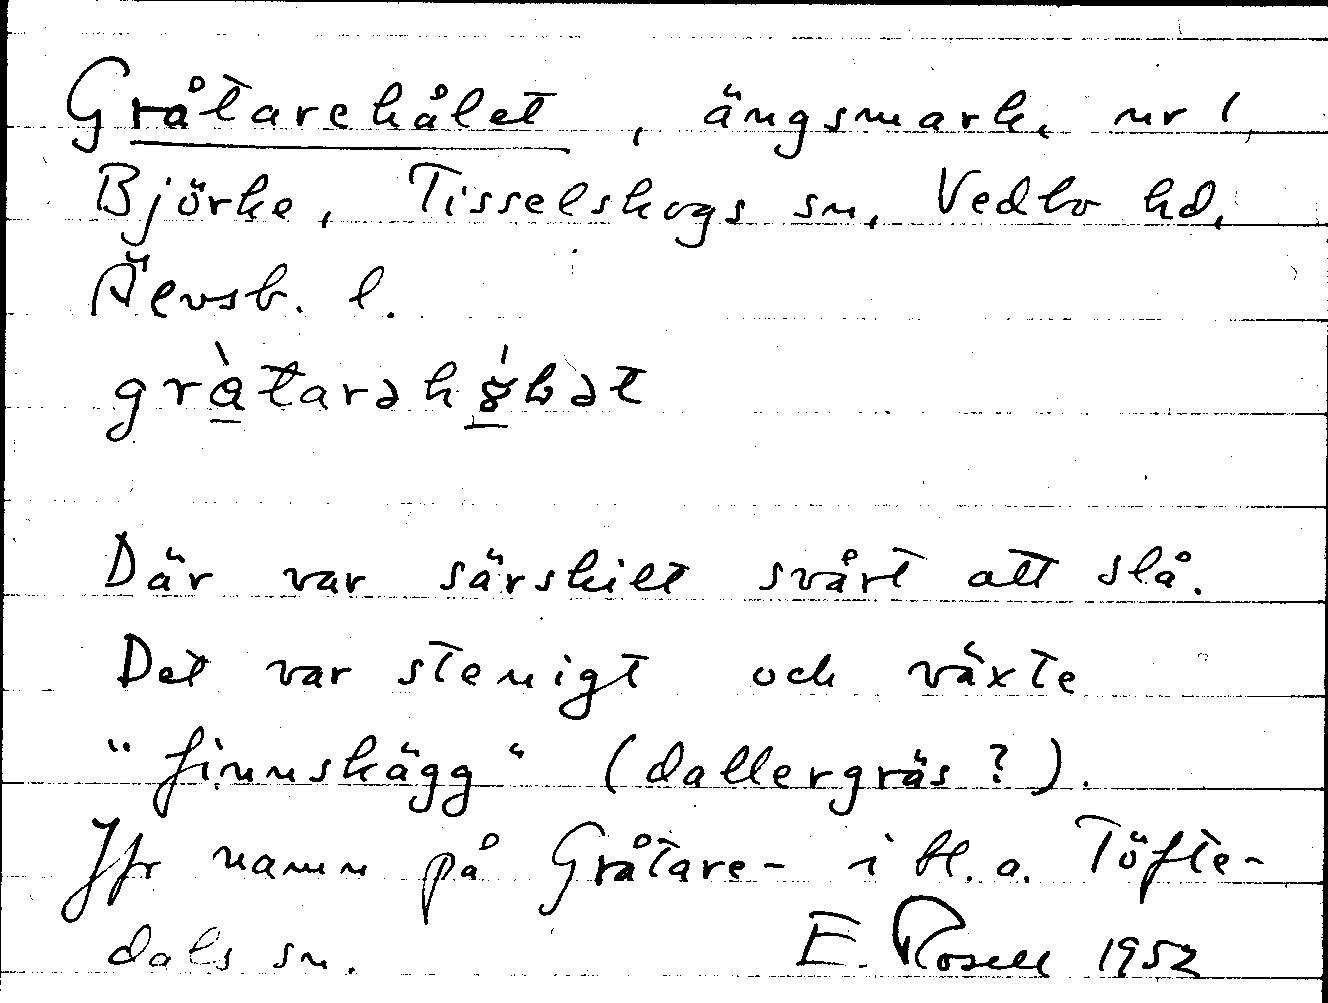 Gråtarehålet, ängsmark, nr 1,
Björke, Tisselskogs sn, Vedbo hd,
Älvsb. l.
Där var särskilt svårt att slå.
Det var stenigt och växte
"finnskägg" (dallergräs?).
Jfr namn på Gråtare- i bl. a. Töfte-
dals sn. E. Rosell 1952